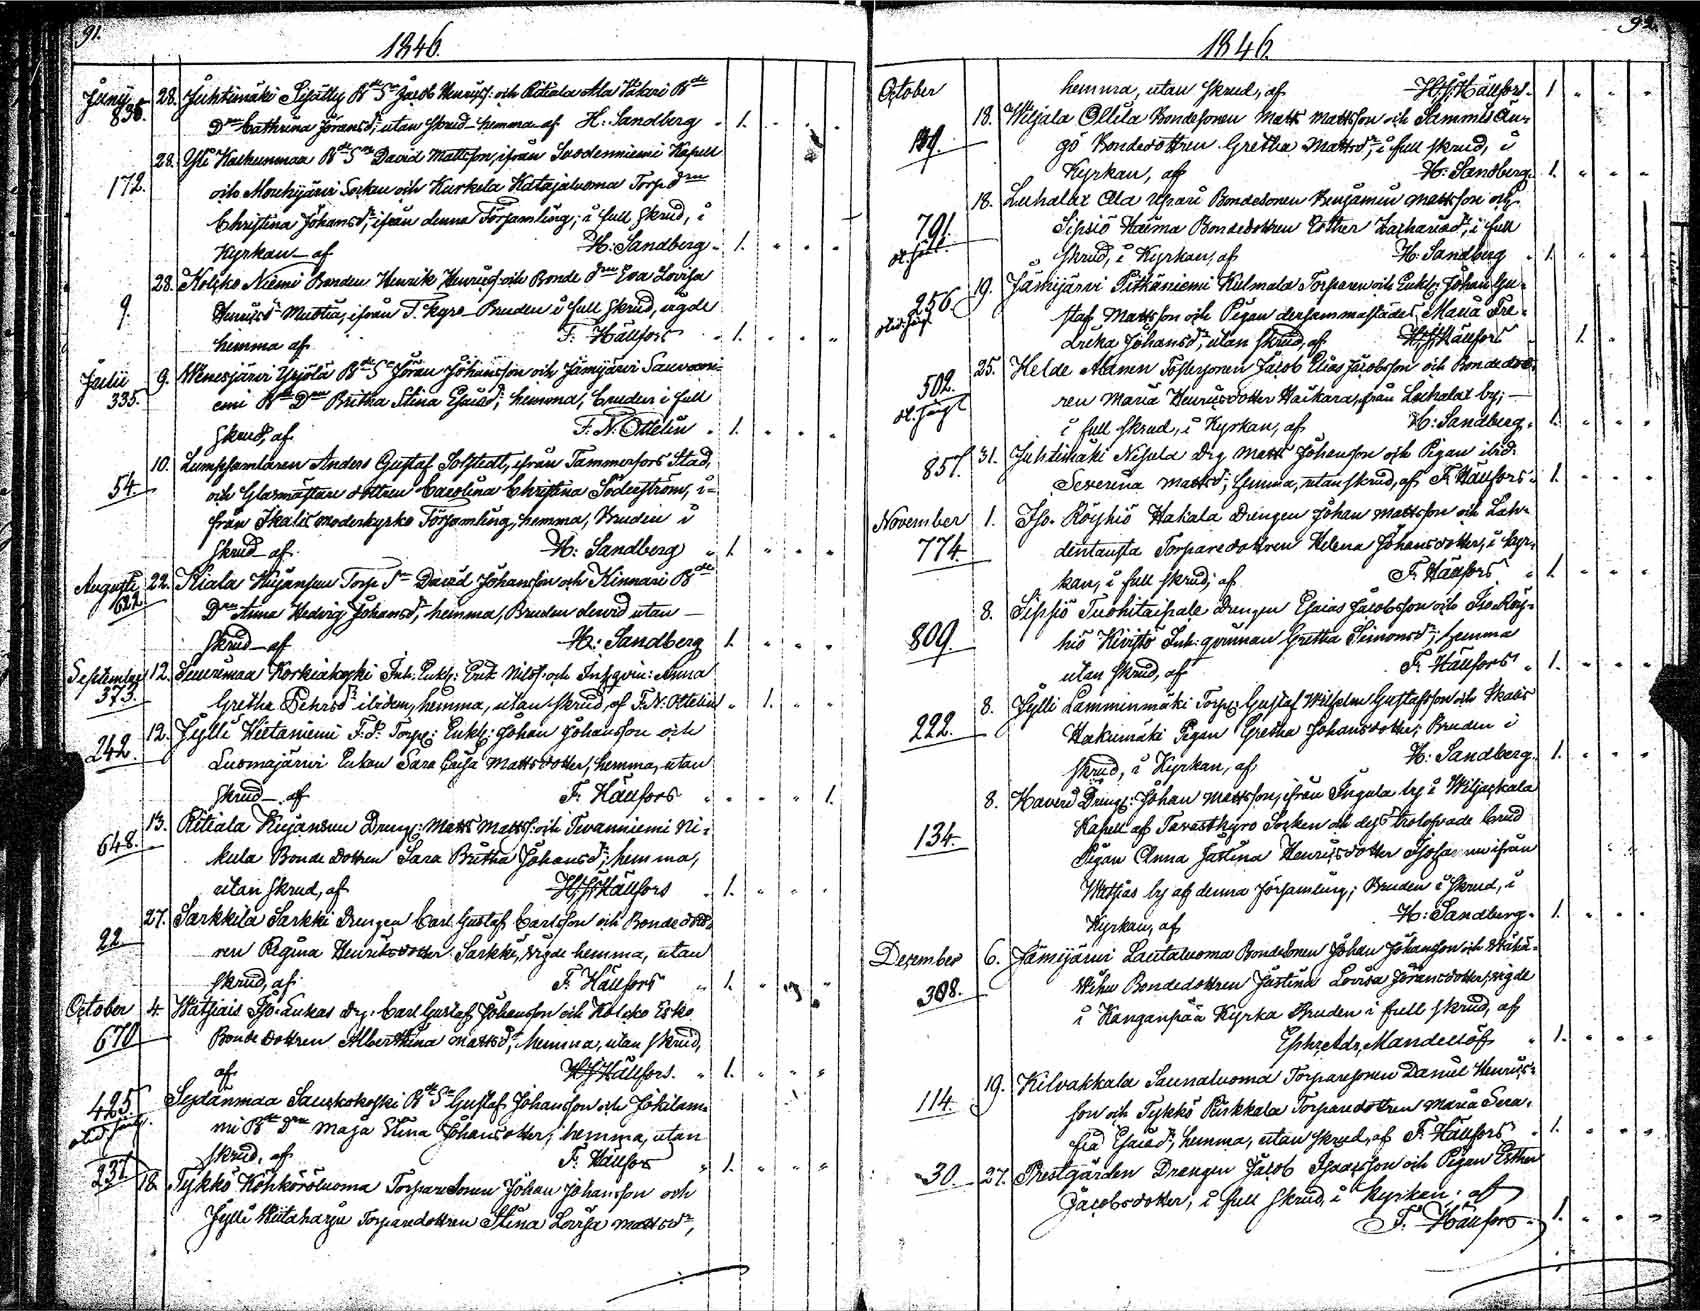 91.
1846.
Junij 28. Juhtimäki Sijälly Bde Sn Jacob Henrics: och Ritiala Ala Kikari Bde
836. Drn Cathrina Jöransd:r, utan skrud hemma af H: Sandberg 1.
28. Yli Kaikunmaa Bde Sn David Mattsson, ifrån Suodenniemi Kapell
172. och Mouhijärvi Socken och Kurkela Katajaluoma Torp drn
Christina Johansdr ifrån denna Församling; i full skrud, i
Kyrkan af H: Sandberg 1.
28. Kolsko Niemi Bonden Henrik Henricss: och Bonde drn Eva Lovisa
9. Henricsdr ifrån T. Kyro Bruden i full skrud, vigde
hemma af F. Hällfors 1.
Julii 9. Wenesjärvi Yrjölä Bde Sn Jöran Johansson och Jämijärvi Sauvani-
335. emi Bde Drn Britha Stina Esaiedr; hemma, bruden i full
skrud, af F. N. Ottelin 1.
10. Lumpsamlaren Anders Gustaf Solstedt, ifrån Tammerfors Stad,
54. och Glasmästare dottren Carolina Christina Söderström, i-
från Ikalis moderkyrko Församling, hemma, Bruden i
skrud af H: Sandberg 1.
Augusti 22. Kiala Kujanpee Torp Sn David Johansson och Kinnari Bde
622. Drn Anna Hedvig Johansdr, hemma, Bruden utan
skrud af H: Sandberg 1.
September 12. Korkiakoski Inh: Enkl: Erik Nilss: och Inhqvin: Anna
373. Gretha Pehrsdr ibidem, hemma, utan skrud af F. N. Ottelin 1.
12. Jylli Hietaniemi Torp: Enkl: Johan Johansson och
242. Luomajärvi Enkan Sara Caisa Mattsdotter, hemma, utan
skrud af F. Hällfors 1.
13. Ritiala Kujanpee Dreng: Matts Mattss: och Tevaniemi Ni-
648. kula Bonde dottren Sara Britha Johansdr; hemma,
utan skrud, af Hällfors 1.
27. Sarkkila Sarkki Drengen Carl Gustaf Carlsson och Bonde dott-
22. ren Regina Henricsdotter Sarkki, vigde hemma, utan
skrud, af F. Hällfors 1.
October 4. Watjais Dr: Carl Gustaf Johansson och Kolcko Esko
670 Bonde dottren Albertina Mattsdr, hemma, utan skrud,
af Hällfors. 1.
425. Sydänmaa Sauskokoski Bde Sn Gustaf Johansson och Jokilam-
mi Bde Drn Maja Stina Johansdotter, hemma, utan
skrud, af F. Hällfors 1.
231. 18. Tykkö Köhköröluoma Torparesonen Johan Johansson och
Jylli Wiitaharju Torparedottren Stina Lovisa Mattsdr,
92.
1846.
October hemma, utan skrud, af Hällfors. 1.
18. Wiljala Ollila Bondesonen Matts Mattsson och Sammis Än-
gö Bondedottren Gretha Mattsdr, i full skrud, i
Kyrkan, af H: Sandberg 1.
18. Luhalax Ala Upari Bondesonen Benjamin Mattsson och
791. Sipsiö Haima Bondedottren Esther Zachariaedr; i full
skrud, i Kyrkan, af H. Sandberg 1.
19. Jämijärvi Pitkäniemi Kulmala Torparen och Enkl: Johan Gu-
256 staf Mattsson och Pigan dersammastädes Maria Fre-
drika Johansdr; utan skrud, af Hällfors 1.
25. Helde Mannin Fostersonen Jacob Elias Jacobsson och Bonde dott-
502. ren Maria Henricsdotter Haihara, från Luhalax by;
i full skrud, i Kyrkan, af H: Sandberg 1.
31. Juhtimäki Nisula Drg Matts Johansson och Pigan ibid:
857. Severina Mattsdr; hemma, utan skrud, af F. Hällfors 1.
November 1. Iso-Röyhiö Hakala Drengen Johan Mattsson och Lah-
774. dentausta Torparedottren Helena Johansdotter, i Kyr-
kan, i full skrud; af F. Hällfors. 1.
8. Sipsiö Tuohitaipale Drengen Esaias Jacobsson och Iso Röy-
809. hiö Kivistö Inh: qvinnan Gretha Simonsdr; hemma
utan skrud, af F. Hällfors 1.
8. Jylli Lamminmäki Torp: Gustaf Wilhelm Gustafsson och Ikalis
222. Hakumäki Pigan Gretha Johansdotter; Bruden i
skrud, i Kyrkan, af H: Sandberg 1.
8. Haveri Drengs: Johan Mattsson, ifrån Ingula by i Wiljackala
134. Kapell af Tavastkyro Socken och dess trolofvade brud
Pigan Anna Justina Henricsdotter ifrån
Watjas by af denna församling; Bruden i skrud, i
Kyrkan, af H: Sandberg 1.
December 6. Jämijärvi Lautaluoma Bondesonen Johan Johansson och
308. Bondedottren Justina Lovisa Jöransdotter, vigde
i Kangahspää Kyrka Bruden i full skrud, af
Ephr. Adr. Mandellöf 1.
19. Kilvakkala Saunaluoma Torparesonen Daniel Henrics-
114. son och Tykkö Pirkkala Torparedottren Maria Sera-
fia Esaiedr; hemma, utan skrud, af F. Hällfors 1.
30. 27. Prestgården Drengen Jacob Isaacsson och Pigan Esther
Jacobsdotter, i full skrud, i Kyrkan; af
F. Hällfors 1.